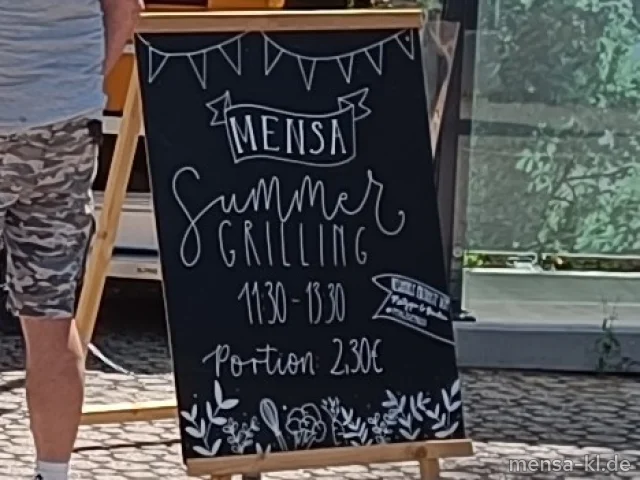 MENSA
Summer
GRILLING
11:30 - 13:30
Portion: 2,30€
mensa-kl.de